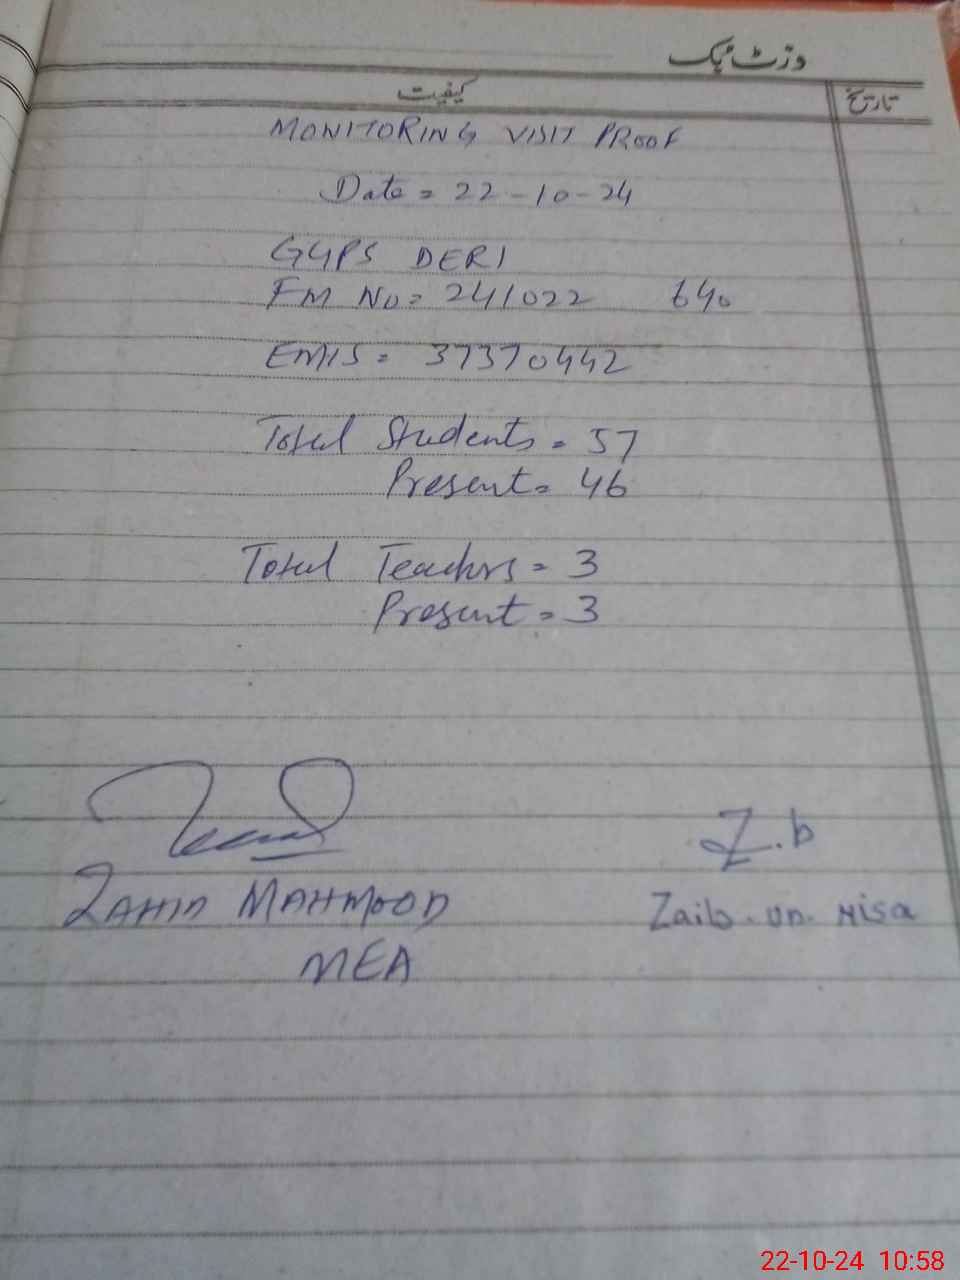 وزٹ بک
کیفیت
تاریخ
MONITORING VISIT PROOF
Date = 22-10-24
GGPS DERI
FM No = 241022 640
EMIS = 37370442
Total Students = 57
Present = 46
Total Teachrs = 3
Present = 3
Z.b
ZAHID MAHMOOD
Zaib.un.Nisa
MEA
22-10-24 10:58